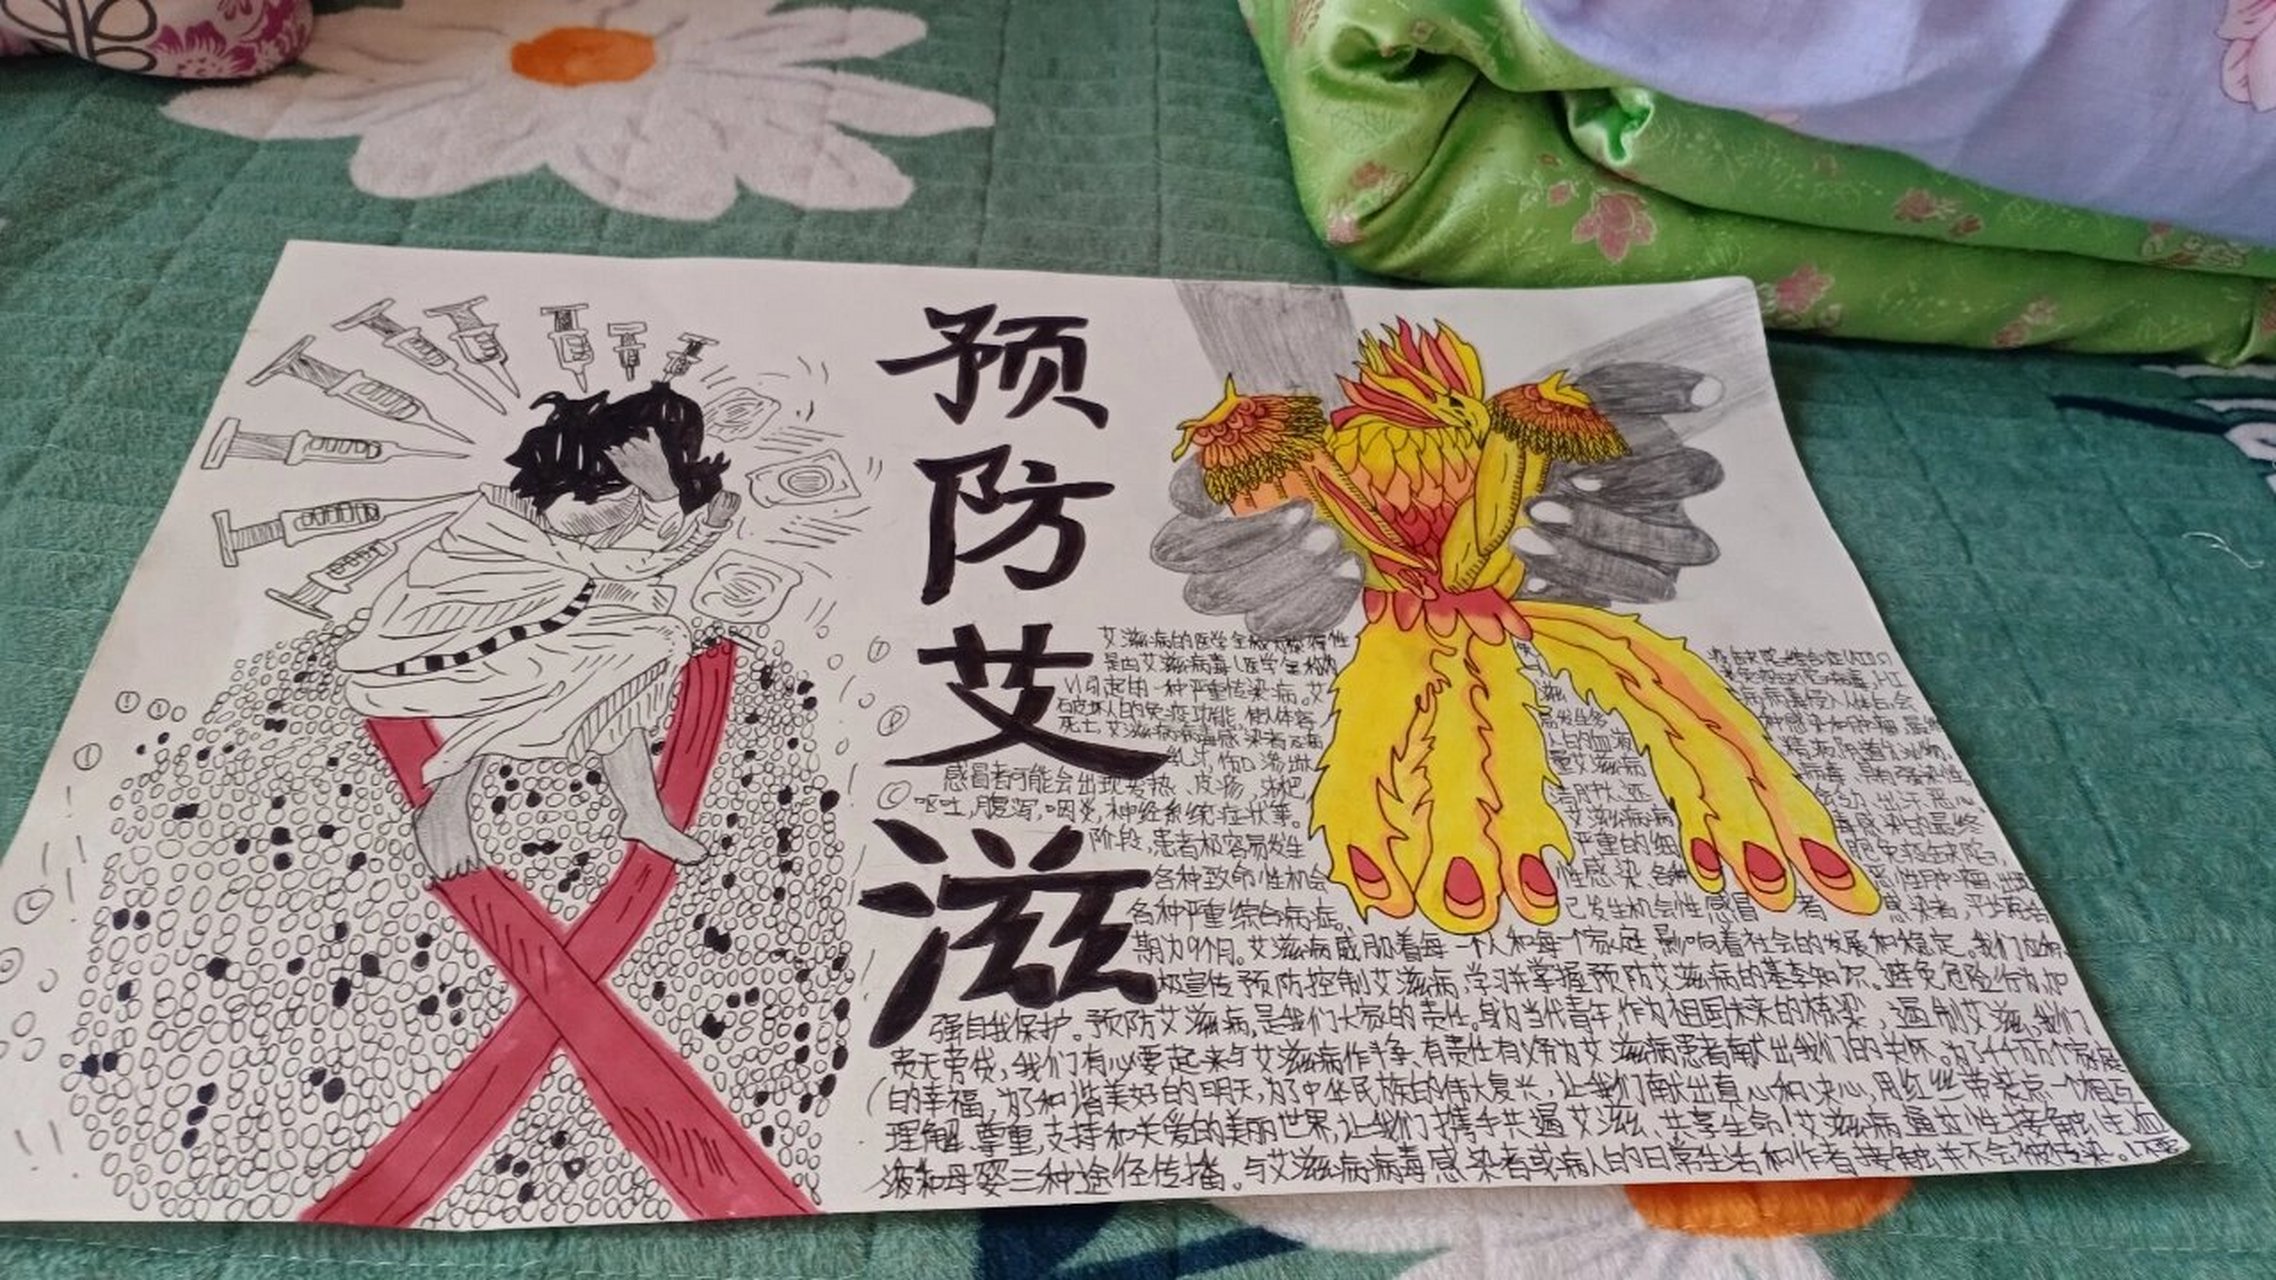 预防艾滋
艾滋病的医学全称
是由艾滋病毒(医学全称为
引起的一种严重传染病。艾 滋 病病毒侵入人体后,会
破坏人的免疫功能,使人体容 易发生多 种感染和肿瘤,最终
死亡。艾滋病病毒感染者
乳汁,伤口渗出 量艾滋病 病毒,具有强传染性
感冒者可能会出现发热、皮疹、淋巴
呕吐,腹泻,咽炎,神经系统症状等。 艾滋病病 毒感染的最终
阶段,患者极容易发生 严重的细 胞免疫缺陷,
各种致命性机会 性感染、各种 恶性肿瘤
各种严重综合病症。 已发生机会性感冒 者 感染者,平均存活
期为9个月。艾滋病威胁着每一个人和每个家庭,影响着社会的发展和稳定。我们应积
极宣传预防控制艾滋病,学习并掌握预防艾滋病的基本知识。避免危险行为,加
强自我保护。预防艾滋病,是我们大家的责任。身为当代青年,作为祖国未来的栋梁,遏制艾滋、我们
责无旁贷,我们有必要起来与艾滋病作斗争、有责任有义务为艾滋病患者献出我们的关怀。为了千千万万个家庭
的幸福,为了和谐美好的明天,为了中华民族的伟大复兴,让我们献出真心和决心,用红丝带装点一个相互
理解、尊重,支持和关爱的美丽世界,让我们携手共遏艾滋、共享生命!艾滋病通过性接触、血
液和母婴三种途径传播。与艾滋病病毒感染者或病人的日常生活和作者接触并不会被传染。